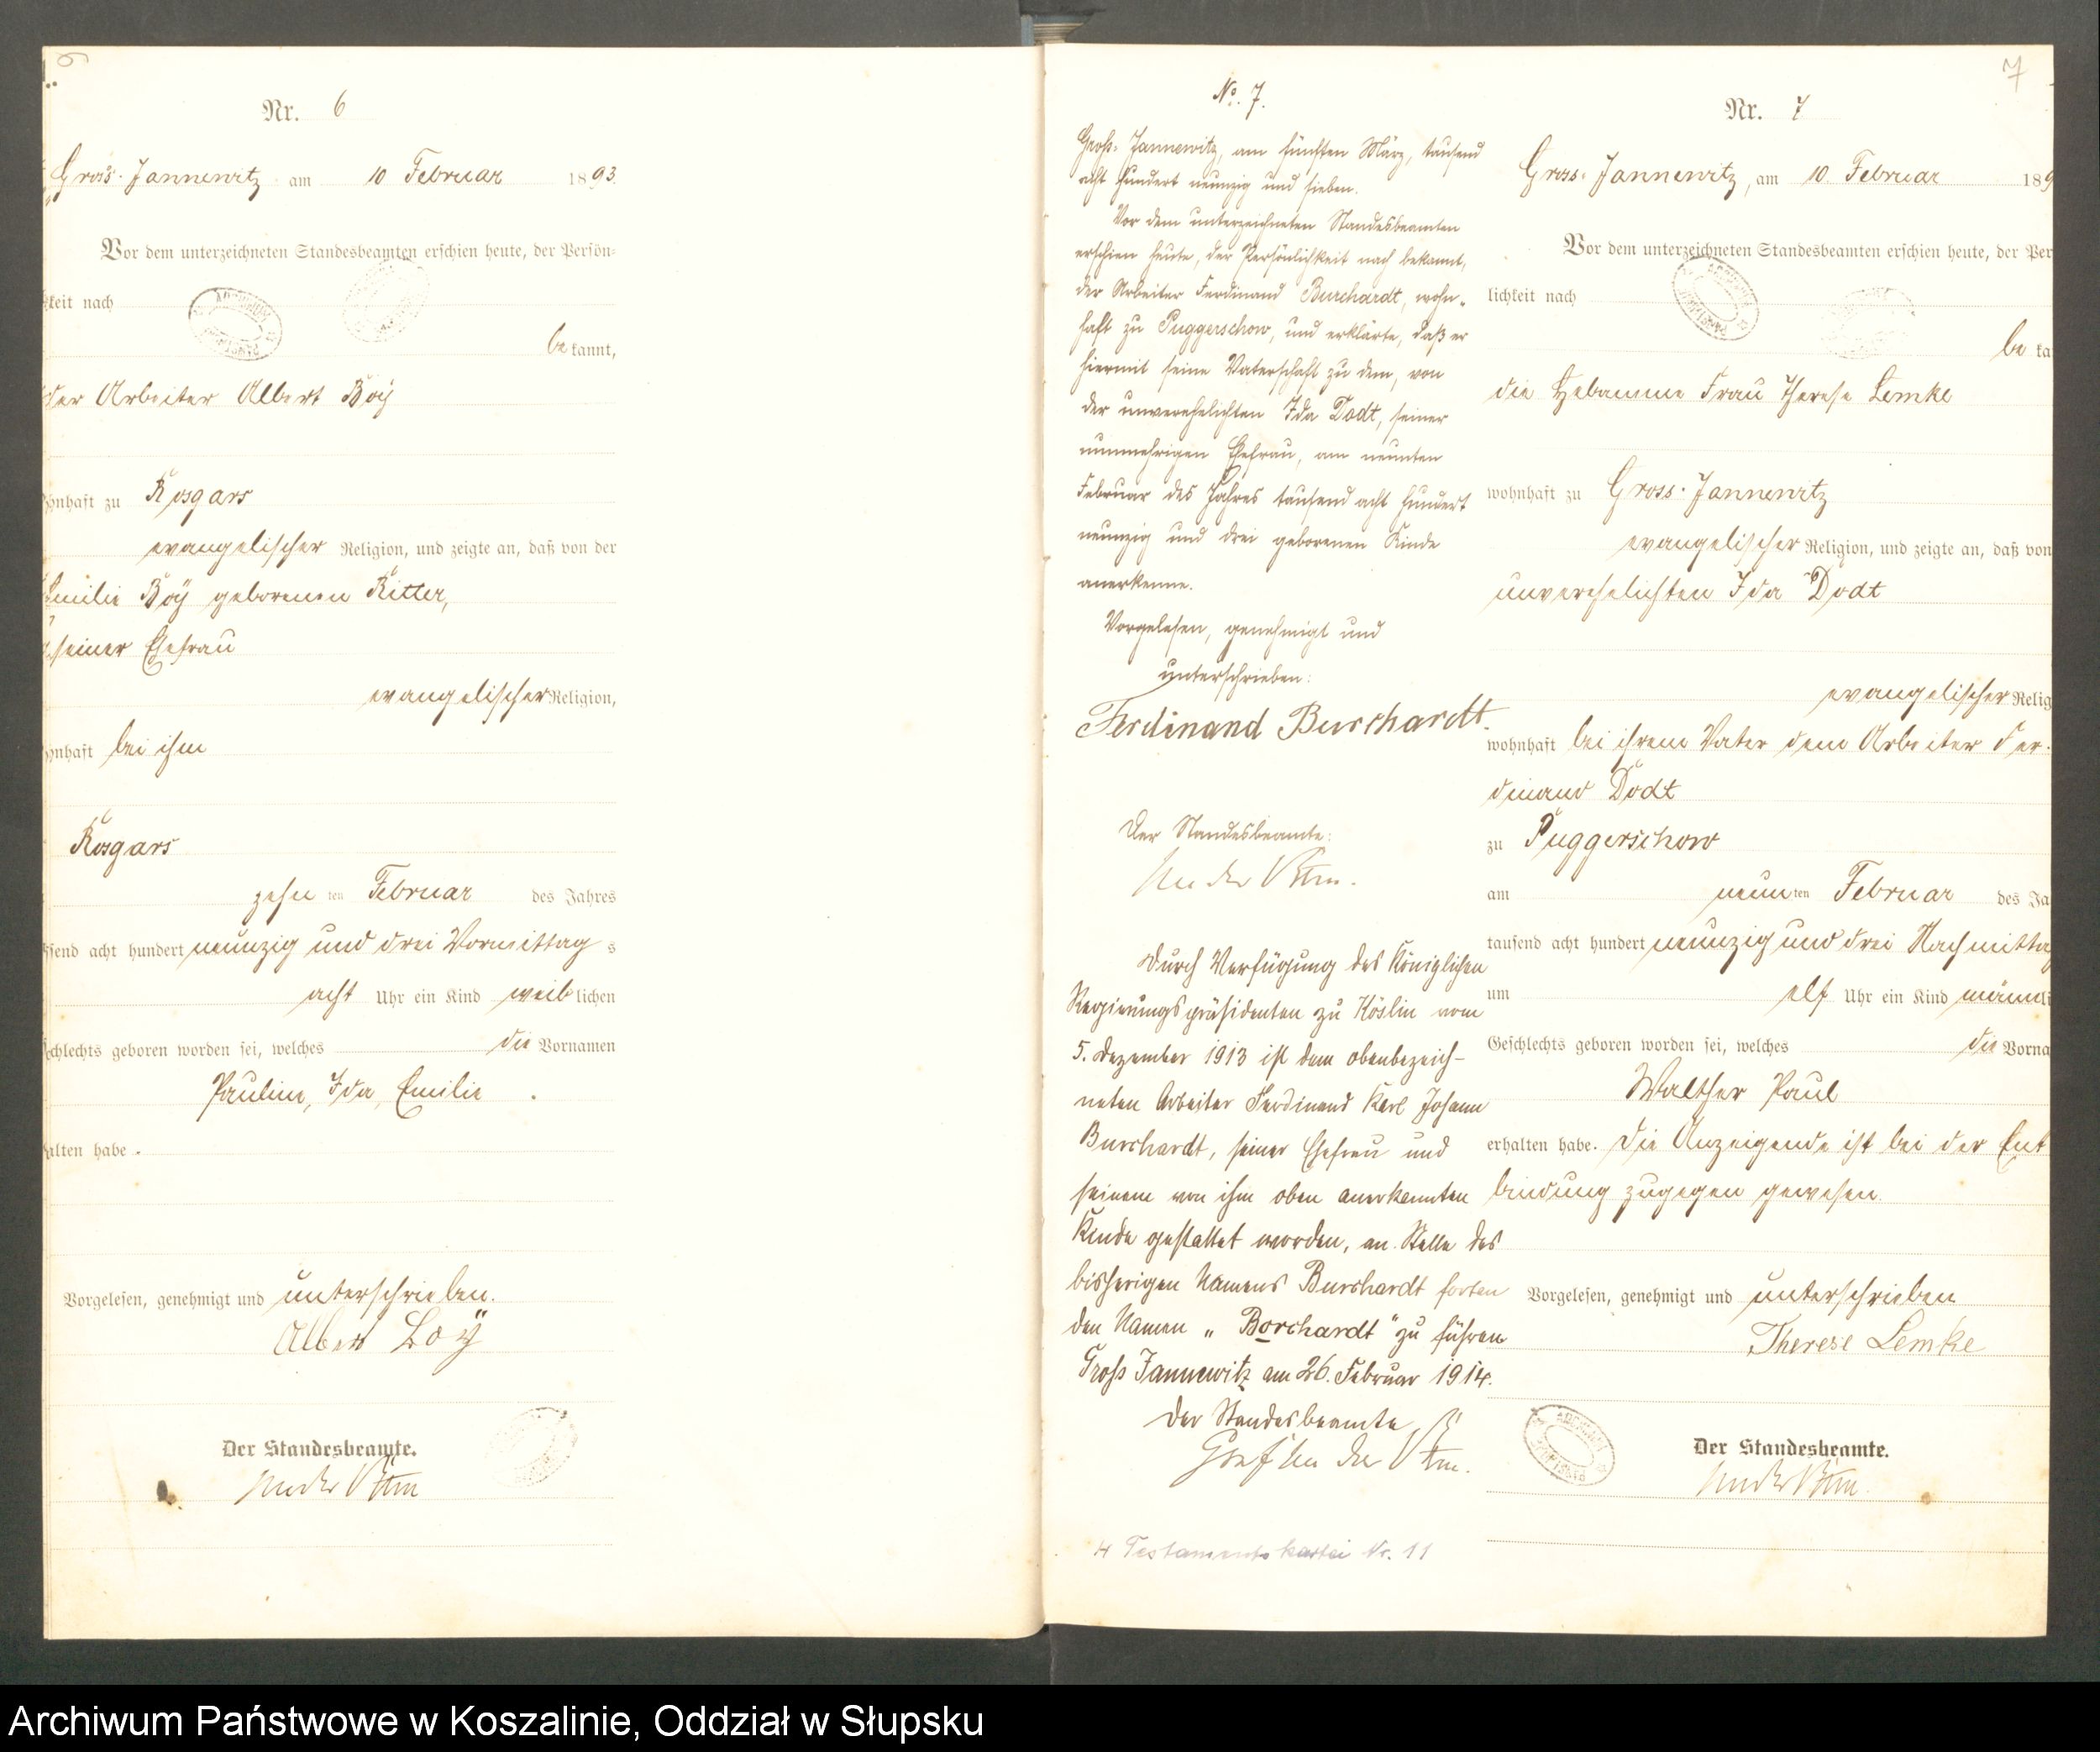 6
Nr. 6
Gross-Jannewitz am 10 Februar 1893.
Vor dem unterzeichneten Standesbeamten erschien heute, der Persön=
keit nach
be kannt,
der Arbeiter Albert Boÿ
wohnhaft zu Rosgars
evangelischer Religion, und zeigte an, daß von der
Emilie Boÿ geborenen Ritter,
seiner Ehefrau
evangelischer Religion,
wohnhaft bei ihm
Rosgars
zehn ten Februar des Jahres
tausend acht hundert neunzig und drei Vormittag s
acht Uhr ein Kind weib lichen
Geschlechts geboren worden sei, welches die Vornamen
Pauline, Ida, Emilie
erhalten habe.
Vorgelesen, genehmigt und unterschrieben.
Albert Boÿ
Der Standesbeamte.
No. 7.
Groß-Jannewitz, am fünften März, tausend
acht hundert neunzig und sieben.
Vor dem unterzeichneten Standesbeamten
erschien heute, der Persönlichkeit nach bekannt,
der Arbeiter Ferdinand Burchardt, wohn-
haft zu Puggerschow, und erklärte, daß er
hiermit seine Vaterschaft zu dem, von
der unverehelichten Ida Dodt, seiner
nunmehrigen Ehefrau, am neunten
Februar des Jahres tausend acht hundert
neunzig und drei geborenen Kinde
anerkenne.
Vorgelesen, genehmigt und
unterschrieben:
Ferdinand Burchardt.
Der Standesbeamte:
Durch Verfügung des Königlichen
Regierungspräsidenten zu Köslin vom
5. Dezember 1913 ist dem obenbezeich-
neten Arbeiter Ferdinand Karl Johann
Burchardt, seiner Ehefrau und
seinem von ihm oben anerkannten
Kinde gestattet worden, an Stelle des
bisherigen Namens Burchardt fortan
den Namen „Borchardt" zu führen
Groß Jannewitz am 26. Februar 1914.
Der Standesbeamte
Graf von der
4 Testamentskartei Nr. 11
7
Nr. 7
Gross-Jannewitz, am 10. Februar 189
Vor dem unterzeichneten Standesbeamten erschien heute, der Per
lichkeit nach
be ka
die Hebamme Frau Therese Lemke
wohnhaft zu Gross-Jannewitz
evangelischer Religion, und zeigte an, daß von
unverehelichten Ida Dodt
evangelischer Relig
wohnhaft bei ihrem Vater dem Arbeiter Fer-
dinand Dodt
zu Puggerschow
am neun ten Februar des Ja
tausend acht hundert neunzig und drei Nachmitta
um elf Uhr ein Kind männli
Geschlechts geboren worden sei, welches die Vorna
Walther Paul
erhalten habe. Die Anzeigende ist bei der Ent
bindung zugegen gewesen.
Vorgelesen, genehmigt und unterschrieben
Therese Lemke
Der Standesbeamte.
Archiwum Państwowe w Koszalinie, Oddział w Słupsku